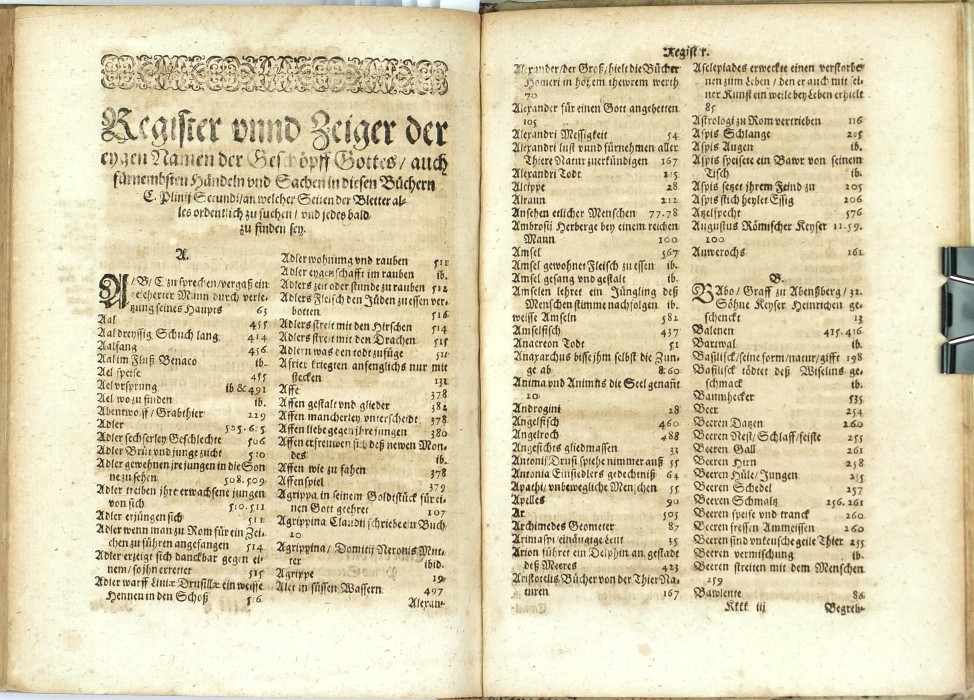 Register vnnd Zeiger der
eygen Namen der Geschöpff Gottes / auch
fürnembsten Händeln vnd Sachen in diesen Büchern
C. Plinij Secundi / an welcher Seiten der Bletter al-
les ordentlich zu suchen / vnd jedes bald
zu finden sey.
A.
A / B / C zu sprechen / vergaß ein
gelehrter Mann durch verle-
tzung seines Haupts 63
Aal 455
Aal dreyssig Schuch lang 414
Aalfang 456
Aal im Fluß Benaco ib.
Ael speise 455
Ael vrsprung ib & 491
Ael wo zu finden ib.
Abentwolff / Grabthier 229
Adler 505. 625
Adler sechserley Geschlechte 506
Adler Brut vnd junge zucht 510
Adler gewehnen jre jungen in die Son
ne zu sehen 508. 509
Adler treiben jhre erwachsene jungen
von sich 510. 511
Adler erjüngen sich 511
Adler wenn man zu Rom für ein Zei-
chen zu führen angefangen 514
Adler erzeigt sich danckbar gegen ei-
nem / so jhn erretter 515
Adler warff Liviæ Drusillæ ein weisse
Hennen in den Schoß 516
Adler wohnung vnd rauben 511
Adler eygenschafft im rauben ib.
Adlers zeit oder stunde zu rauben 512
Adlers Fleisch den Jüden zu essen ver-
botten 516
Adlers streit mit den Hirschen 514
Adlers streit mit den Drachen 515
Adlern was den todt zufüge 511
Afrier kriegten anfenglichs nur mit
stecken 131
Affe 378
Affen gestalt vnd glieder 382
Affen mancherley vnterscheidt 378
Affen liebe gegen jhre jungen 380
Affen erfreuwen sich deß newen Mon-
des ib.
Affen wie zu fahen 378
Affenspiel 379
Agrippa in seinem Goldtstück für ei-
nen Gott geehret 107
Agrippina Claudij schriebe ein Buch
10
Agrippina / Domitij Neronis Mut-
ter ibid.
Agrippe 19
Aler in süssen Wassern 497
Alexan-
Regist r.
Alexander / der Groß / hielt die Bücher
Homeri in hohem thewrem werth
70
Alexander für einen Gott angebetten
105
Alexandri Messigkeit 54
Alexandri lust vnnd fürnehmen aller
Thiere Natur zu erkündigen 167
Alexandri Todt 215
Alcippe 28
Alraun 212
Ansehen etlicher Menschen 77. 78
Ambrosij Herberge bey einem reichen
Mann 100
Amsel 567
Amsel gewohnet Fleisch zu essen ib.
Amsel gesang vnd gestalt ib.
Amselen lehret ein Jüngling deß
Menschen stimme nachfolgen ib.
weisse Amseln 582
Amselfisch 437
Anacreon Todt 51
Anaxarchus bisse jhm selbst die Zun-
ge ab 8: 60
Anima vnd Animus die Seel genañt
10
Androgini 28
Angelfisch 460
Angelroch 488
Angesichts gliedmassen 33
Antonij Drusi spiehe nimmer auß 55
Antonia Einsiedlers gedechtniß 64
Apathi / vnbewegliche Menschen 55
Apelles 90
Ar 503
Archimedes Geometer 87
Arimaspi einäugige Leut 35
Arion führet ein Delphin an gestadt
deß Meeres 423
Aristotelis Bücher von der Thier Na-
turen 167
Asclepiades erweckte einen verstorbe-
nen zum Leben / den er auch mit sei-
ner Kunst ein weile bey Leben erhielt
85
Astrologi zu Rom vertrieben 116
Aspis Schlange 205
Aspis Augen ib.
Aspis speisete ein Bawr von seinem
Tisch ib.
Aspis setzet jhrem Feind zu 205
Aspis stich heylet Essig 206
Atzelspecht 576
Augustus Römischer Keyser 11. 59.
100
Auwerochs 161
B.
BAbo / Graff zu Abenßberg / 32.
Söhne Keyser Heinrichen ge-
schenckt 13
Balenen 415. 416
Barwal ib.
Basilisck / seine form / natur / gifft 198
Basilisck tödtet deß Wiselins ge-
schmack ib.
Baumhecker 535
Beer 254
Beeren Datzen 260
Beeren Nest / Schlaff / feiste 255
Beeren Gall 261
Beeren Hirn 258
Beeren Hüle / Jungen 255
Beeren Schedel 257
Beeren Schmaltz 256. 261
Beeren speise vnd tranck 260
Beeren fressen Ammeissen 260
Beeren sind vnkeusche geile Thier 255
Beeren vermischung ib.
Beeren streiten mit dem Menschen
259
Bawleute 86
Kkkk iij
Begreb-